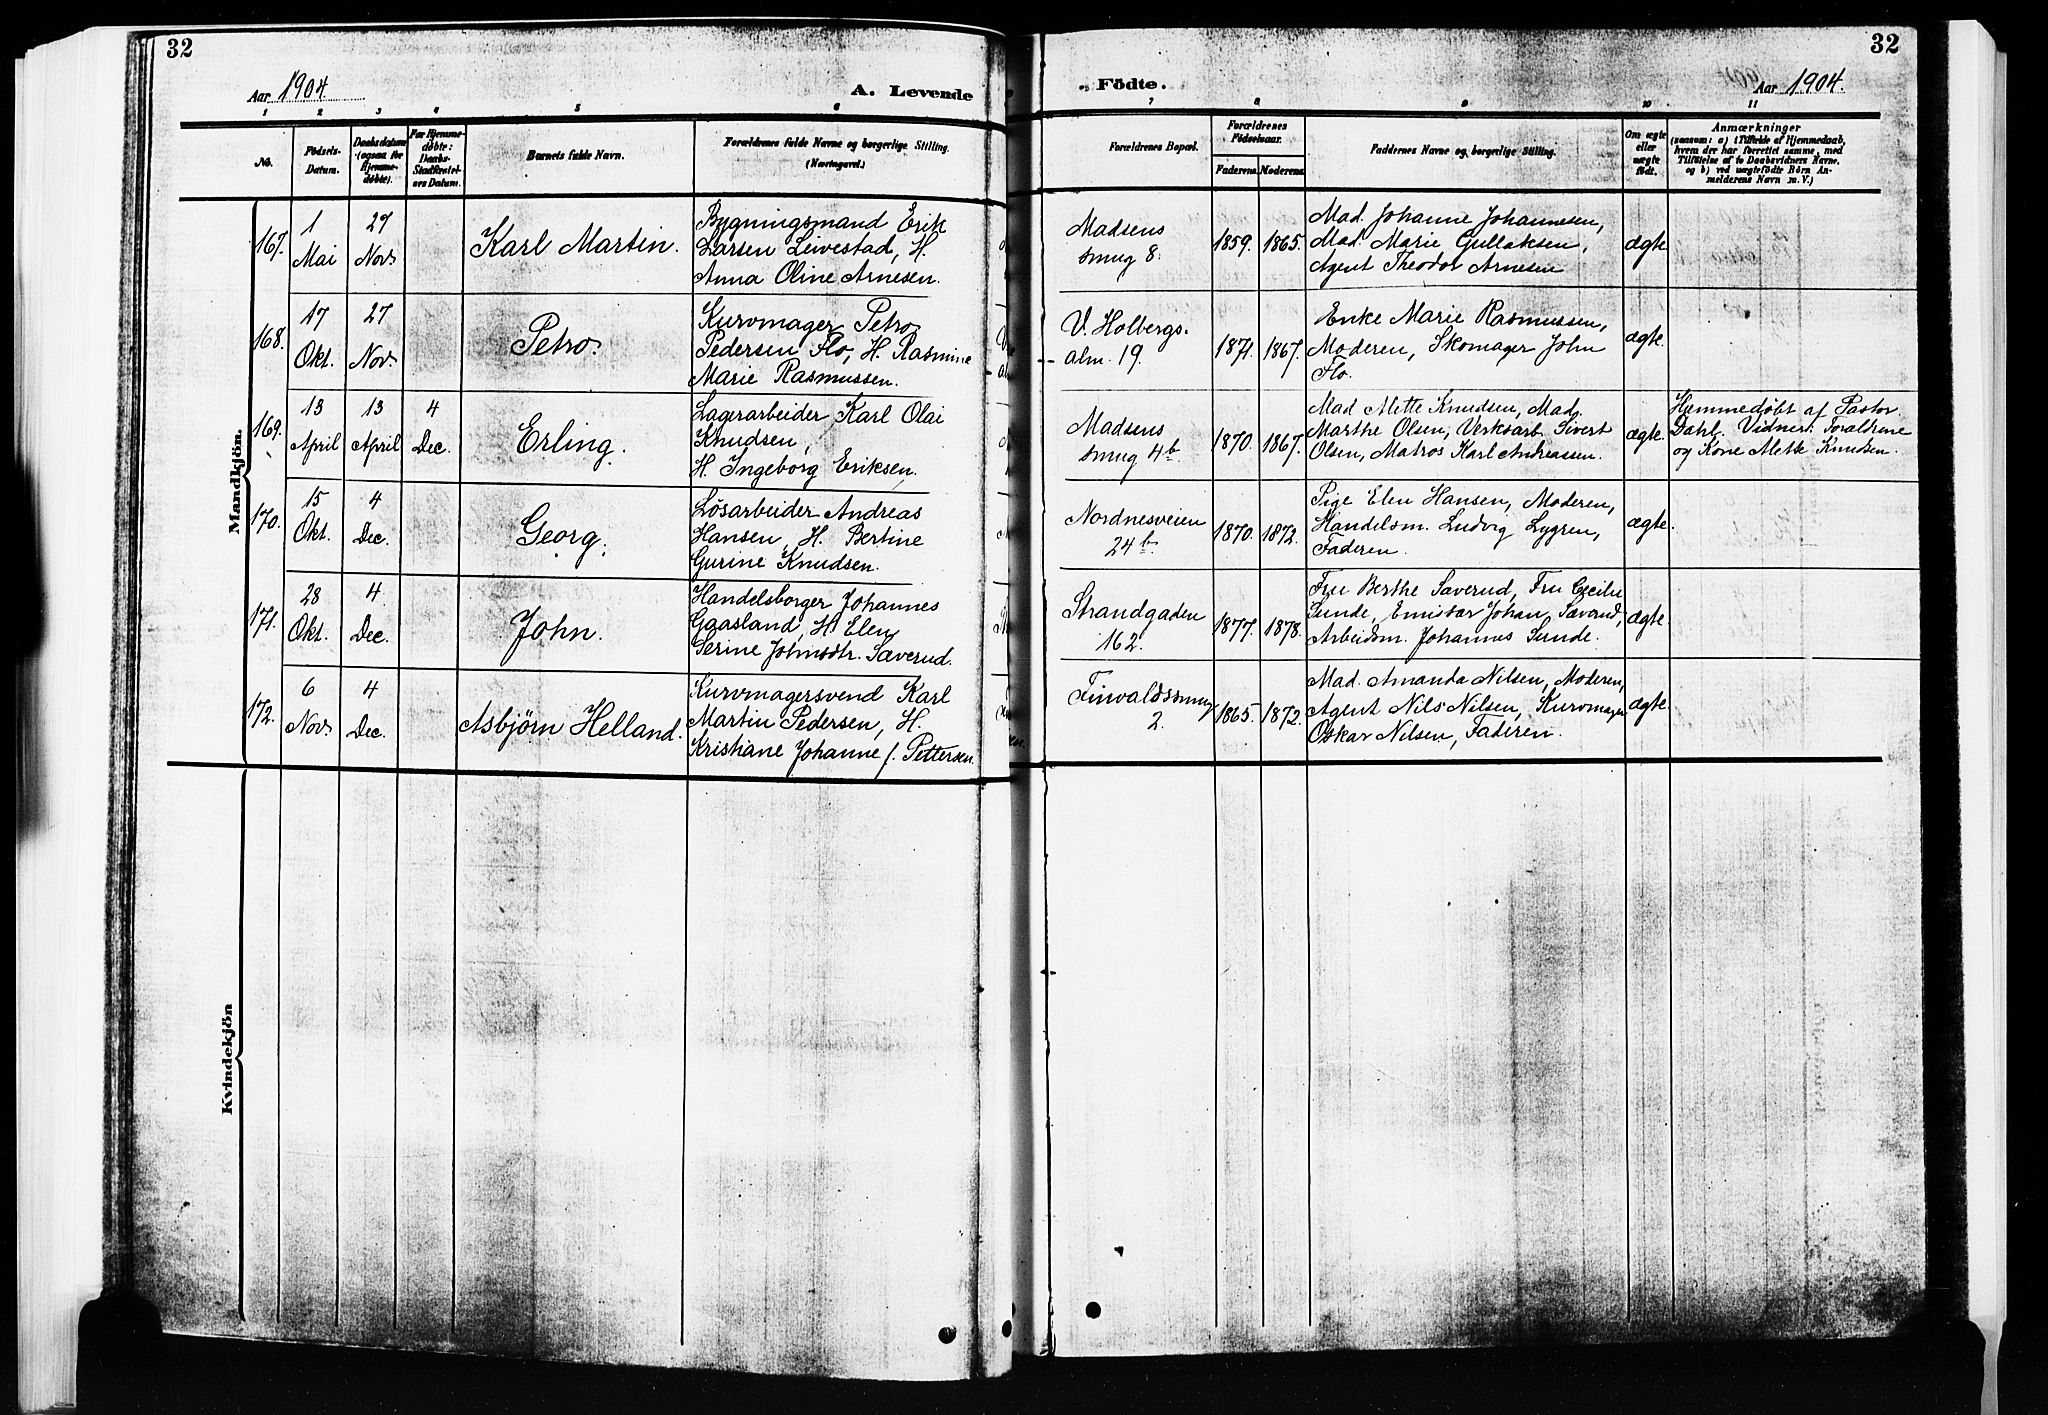 32
Aar 1904.
A. Levende
1 2 3 4 5 6
No.
Födsels-
Datum.
Daabsdatum
(ogsaa for
Hjemme-
døbte).
For Hjemme-
døbte:
Daabs-
Stadfæstel-
ses Datum.
Barnets fulde Navn.
Forældrenes fulde Navne og borgerlige Stilling.
(Nøiagtigen.)
Mandkjön.
167.
1
Mai
27
Nov.
Karl Martin.
Bygningsmand Erik
Larsen Leivestad, H.
Anna Oline Arnesen.
168.
17
Okt.
27
Nov.
Petro.
Kurvmager Petro
Pedersen Flo, H. Rasmine
Marie Rasmussen.
169.
13
April
13
April
4
Dec.
Erling.
Lagerarbeider Karl Olai
Knudsen,
H. Ingeborg Eriksen.
170.
15
Okt.
4
Dec.
Georg.
Løsarbeider Andreas
Hansen, H. Bertine
Gurine Knudsen.
171.
28
Okt.
4
Dec.
John.
Handelsborger Johannes
Gaasland, H. Elen
Serine Johnsdtr. Sæverud.
172.
6
Nov.
4
Dec.
Asbjørn Helland.
Kurvmagersvend Karl
Martin Pedersen, H.
Kristiane Johanne f. Pettersen.
Kvindekjön
32
Födte.
Aar 1904.
7 8 9 10 11
Forældrenes Bopæl.
Forældrenes
Födselsaar.
Faderens. Moderens.
Faddernes Navne og borgerlige Stilling.
Om ægte
eller
uægte
födt.
Anmærkninger
(saasom: a) i Tilfælde af Hjemmedaab,
hvem der har forrettet samme, med
Tilföielse af to Daabsvidners Navne.
og b) ved uægtefödte Börn An-
melderens Navn m. V.)
Madsens
smug 8.
1859. 1865.
Mad. Johanne Johannesen,
Mad. Marie Gullaksen,
Agent Theodor Arnesen
ægte
V. Holbergs-
alm. 19.
1871. 1867.
Enke Marie Rasmussen,
Moderen, Skomager John
Flo.
ægte.
Madsens
smug 4b.
1870. 1867.
Mad Mette Knudsen, Mad.
Marthe Olsen, Verksarb. Sivert
Olsen, Matros Karl Andreassen.
ægte.
Hjemmedøbt af Pastor
Dahl. Vidner: Forældrene
og Kone Mette Knudsen.
Nordnesveien
24b.
1870. 1872.
Pige Elen Hansen, Moderen,
Handelsm. Ludvig Lygren,
Faderen.
ægte.
Strandgaden
162.
1877. 1878.
Fru Berthe Sæverud, Fru Cecilie
Sunde, Emisær Johan Sæverud,
Arbeidsm. Johannes Sunde.
ægte.
Finvaldssmug
2.
1865. 1872.
Mad. Amanda Nilsen, Moderen,
Agent Nils Nilsen, Kurvmager
Oskar Nilsen, Faderen.
ægte.